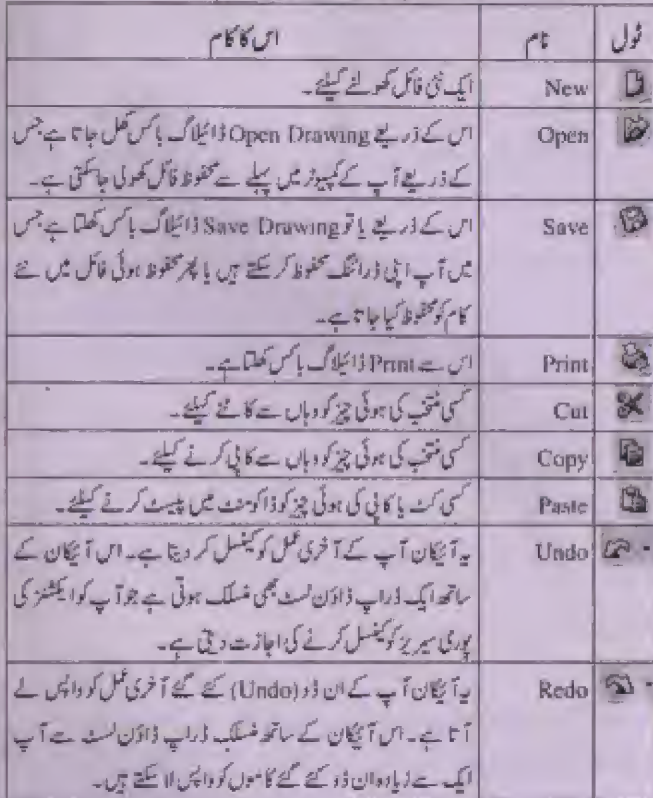 ٹول نام اس کا کام
New ایک نئی فائل کھولنے کیلئے۔
Open اس کے ذریعے Open Drawing ڈائیلاگ باکس کھل جاتا ہے جس
کے ذریعے آپ کے کمپیوٹر میں پہلے سے محفوظ فائل کھولی جاسکتی ہے۔
Save اس کے ذریعے یا تو Save Drawing ڈائیلاگ باکس کھلتا ہے جس
میں آپ اپنی ڈرائنگ محفوظ کر سکتے ہیں یا پھر محفوظ ہوئی فائل میں نئے
کام کو محفوظ کیا جاتا ہے۔
Print اس سے Print ڈائیلاگ باکس کھلتا ہے۔
Cut کسی منتخب کی ہوئی چیز کو وہاں سے کاٹنے کیلئے۔
Copy کسی منتخب کی ہوئی چیز کو وہاں سے کاپی کرنے کیلئے۔
Paste کسی کٹ یا کاپی کی ہوئی چیز کو ڈاکومنٹ میں پیسٹ کرنے کیلئے۔
Undo یہ آئیکان آپ کے آخری عمل کو کینسل کر دیتا ہے۔ اس آئیکان کے
ساتھ ایک ڈراپ ڈاؤن لسٹ بھی منسلک ہوتی ہے جو آپ کو ایکشنز کی
پوری سیریز کو کینسل کرنے کی اجازت دیتی ہے۔
Redo یہ آئیکان آپ کے ان ڈو (Undo) کئے گئے آخری عمل کو واپس لے
آتا ہے۔ اس آئیکان کے ساتھ منسلک ڈراپ ڈاؤن لسٹ سے آپ
ایک سے زیادہ ان ڈو کئے گئے کاموں کو واپس لا سکتے ہیں۔